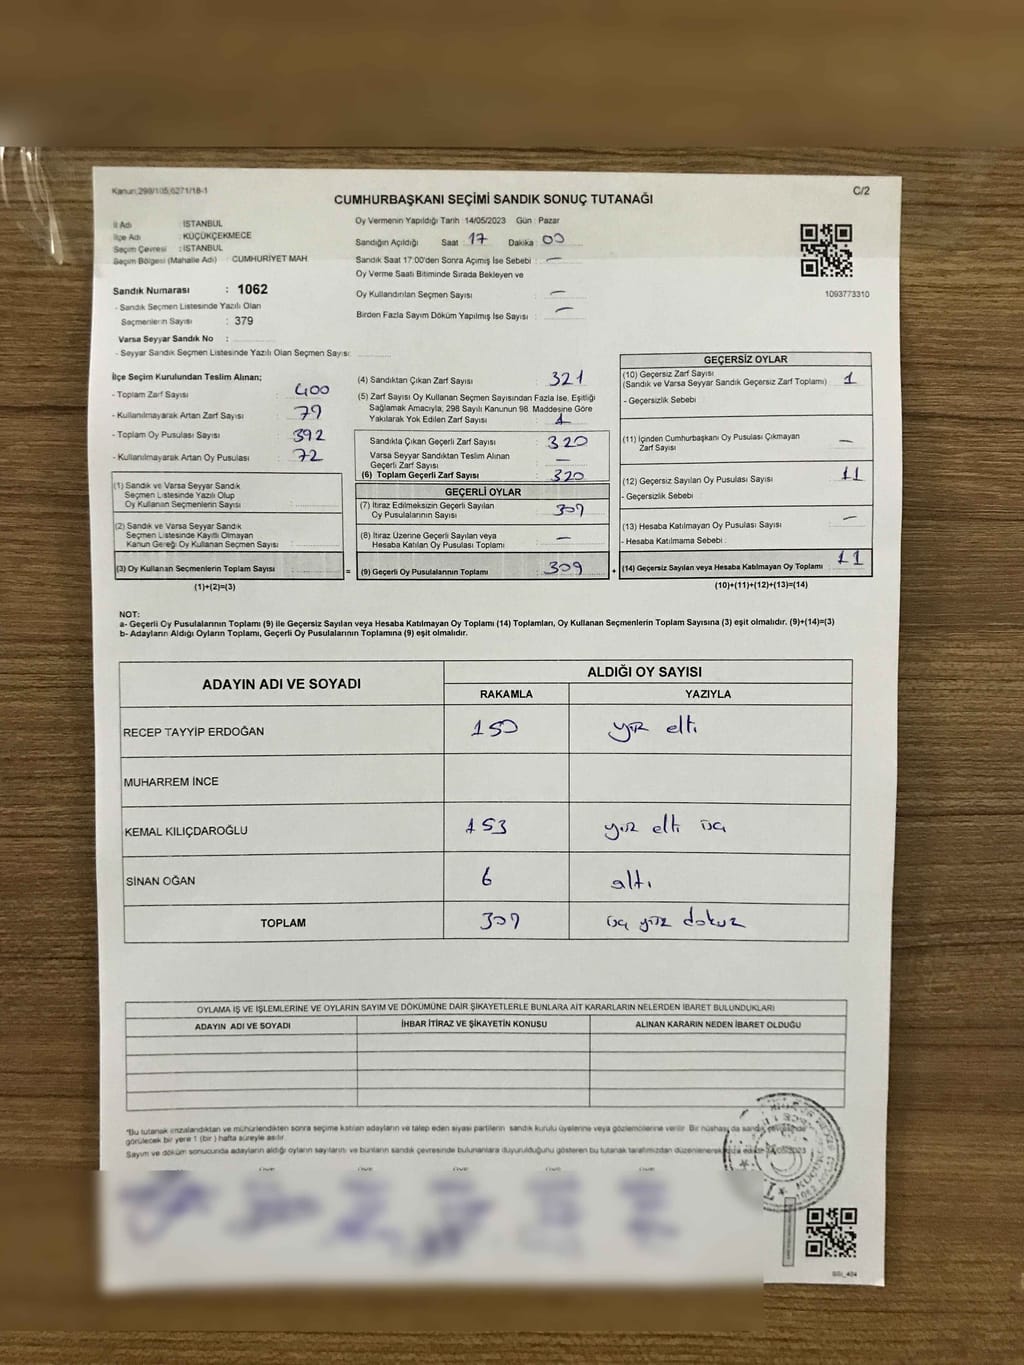 Kanun:298/105,6271/18-1
C/2
CUMHURBAŞKANI SEÇİMİ SANDIK SONUÇ TUTANAĞI
İl Adı : İSTANBUL
İlçe Adı : KÜÇÜKÇEKMECE
Seçim Çevresi : İSTANBUL
Seçim Bölgesi (Mahalle Adı) : CUMHURİYET MAH
Sandık Numarası : 1062
- Sandık Seçmen Listesinde Yazılı Olan
Seçmenlerin Sayısı : 379
Varsa Seyyar Sandık No :
- Seyyar Sandık Seçmen Listesinde Yazılı Olan Seçmen Sayısı:
Oy Vermenin Yapıldığı Tarih :14/05/2023 Gün : Pazar
Sandığın Açıldığı Saat 17 Dakika 00
Sandık Saat 17:00'den Sonra Açımış İse Sebebi : —
Oy Verme Saati Bitiminde Sırada Bekleyen ve
Oy Kullandırılan Seçmen Sayısı : —
Birden Fazla Sayım Döküm Yapılmış İse Sayısı : —
1093773310
İlçe Seçim Kurulundan Teslim Alınan;
- Toplam Zarf Sayısı : 400
- Kullanılmayarak Artan Zarf Sayısı : 79
- Toplam Oy Pusulası Sayısı : 392
- Kullanılmayarak Artan Oy Pusulası : 72
(1) Sandık ve Varsa Seyyar Sandık
Seçmen Listesinde Yazılı Olup
Oy Kullanan Seçmenlerin Sayısı :
(2) Sandık ve Varsa Seyyar Sandık
Seçmen Listesinde Kayıtlı Olmayan
Kanun Gereği Oy Kullanan Seçmen Sayısı :
(3) Oy Kullanan Seçmenlerin Toplam Sayısı
(1)+(2)=(3)
=
(4) Sandıktan Çıkan Zarf Sayısı : 321
(5) Zarf Sayısı Oy Kullanan Seçmen Sayısından Fazla İse, Eşitliği
Sağlamak Amacıyla, 298 Sayılı Kanunun 98. Maddesine Göre
Yakılarak Yok Edilen Zarf Sayısı : 1
Sandıkla Çıkan Geçerli Zarf Sayısı : 320
Varsa Seyyar Sandıktan Teslim Alınan
Geçerli Zarf Sayısı : —
(6) Toplam Geçerli Zarf Sayısı : 320
GEÇERLİ OYLAR
(7) İtiraz Edilmeksizin Geçerli Sayılan
Oy Pusulalarının Sayısı : 309
(8) İtiraz Üzerine Geçerli Sayılan veya
Hesaba Katılan Oy Pusulası Toplamı : —
(9) Geçerli Oy Pusulalarının Toplamı : 309
+
GEÇERSİZ OYLAR
(10) Geçersiz Zarf Sayısı : 1
(Sandık ve Varsa Seyyar Sandık Geçersiz Zarf Toplamı)
- Geçersizlik Sebebi
(11) İçinden Cumhurbaşkanı Oy Pusulası Çıkmayan
Zarf Sayısı : —
(12) Geçersiz Sayılan Oy Pusulası Sayısı : 11
- Geçersizlik Sebebi
(13) Hesaba Katılmayan Oy Pusulası Sayısı : —
- Hesaba Katılmama Sebebi :
(14) Geçersiz Sayılan veya Hesaba Katılmayan Oy Toplamı : 11
(10)+(11)+(12)+(13)=(14)
NOT:
a- Geçerli Oy Pusulalarının Toplamı (9) ile Geçersiz Sayılan veya Hesaba Katılmayan Oy Toplamı (14) Toplamları, Oy Kullanan Seçmenlerin Toplam Sayısına (3) eşit olmalıdır. (9)+(14)=(3)
b- Adayların Aldığı Oyların Toplamı, Geçerli Oy Pusulalarının Toplamına (9) eşit olmalıdır.
ADAYIN ADI VE SOYADI
ALDIĞI OY SAYISI
RAKAMLA YAZIYLA
RECEP TAYYİP ERDOĞAN 150 yüz elli
MUHARREM İNCE
KEMAL KILIÇDAROĞLU 153 yüz elli üç
SİNAN OĞAN 6 altı
TOPLAM 309 üç yüz dokuz
OYLAMA İŞ VE İŞLEMLERİNE VE OYLARIN SAYIM VE DÖKÜMÜNE DAİR ŞİKAYETLERLE BUNLARA AİT KARARLARIN NELERDEN İBARET BULUNDUKLARI
ADAYIN ADI VE SOYADI İHBAR İTİRAZ VE ŞİKAYETİN KONUSU ALINAN KARARIN NEDEN İBARET OLDUĞU
*Bu tutanak imzalandıktan ve mühürlendikten sonra seçime katılan adayların ve talep eden siyasi partilerin sandık kurulu üyelerine veya gözlemcilerine verilir. Bir nüshası da sandık çevresinde
görülecek bir yere 1 (bir) hafta süreyle asılır.
Sayım ve döküm sonucunda adayların aldığı oyların sayılarını ve bunların sandık çevresinde bulunanlara duyurulduğunu gösteren bu tutanak tarafımızdan düzenlenerek